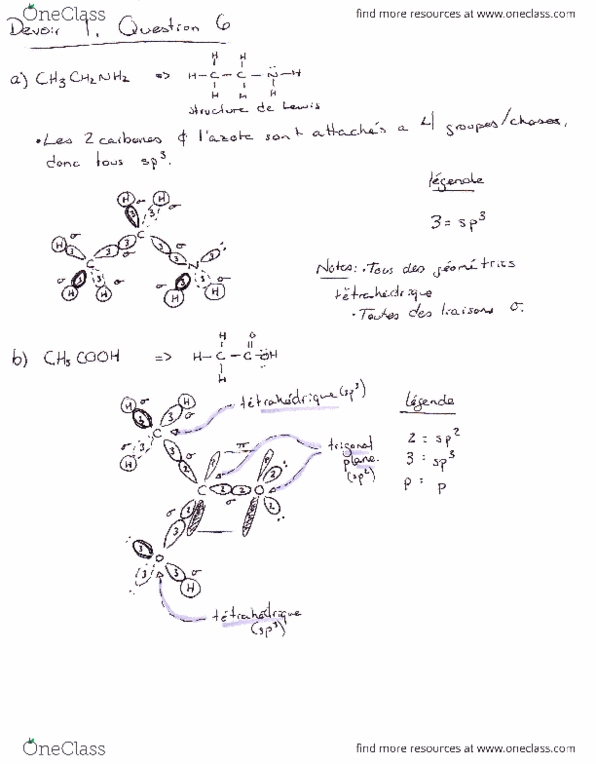 OneClass
find more resources at www.oneclass.com
Devoir 1, Question 6
a) CH3CH2NH2 => H-C-C-N-H
H H
H H H
structure de Lewis
• Les 2 carbones & l'azote sont attachés à 4 groupes/choses,
donc tous sp³.
légende
3 = sp³
Notes: • Tous des géométries
tétrahédrique
• Toutes des liaisons σ.
b) CH3COOH => H-C-C-OH
H O
H
tétrahédrique (sp³)
trigonal
plane.
(sp²)
Légende
2 = sp²
3 = sp³
p = p
tétrahédrique
(sp³)
OneClass
find more resources at www.oneclass.com